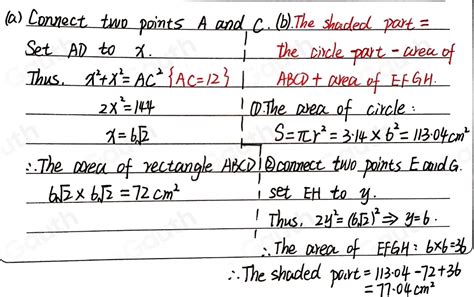 (a) Connect two points A and C.
Set AD to x.
Thus, x²+x²=AC² {AC=12}
2x²=144
x=6√2
∴The area of rectangle ABCD
6√2×6√2=72cm²
(b).The shaded part =
the circle part - area of
ABCD + area of EFGH.
①.The area of circle:
S=πr²=3.14×6²=113.04cm²
②connect two points E and G.
set EH to y.
Thus, 2y²=(6√2)² ⇒ y=6.
∴The area of EFGH: 6×6=36
∴The shaded part=113.04-72+36
=77.04cm²
Gauth
Gauth
Gauth